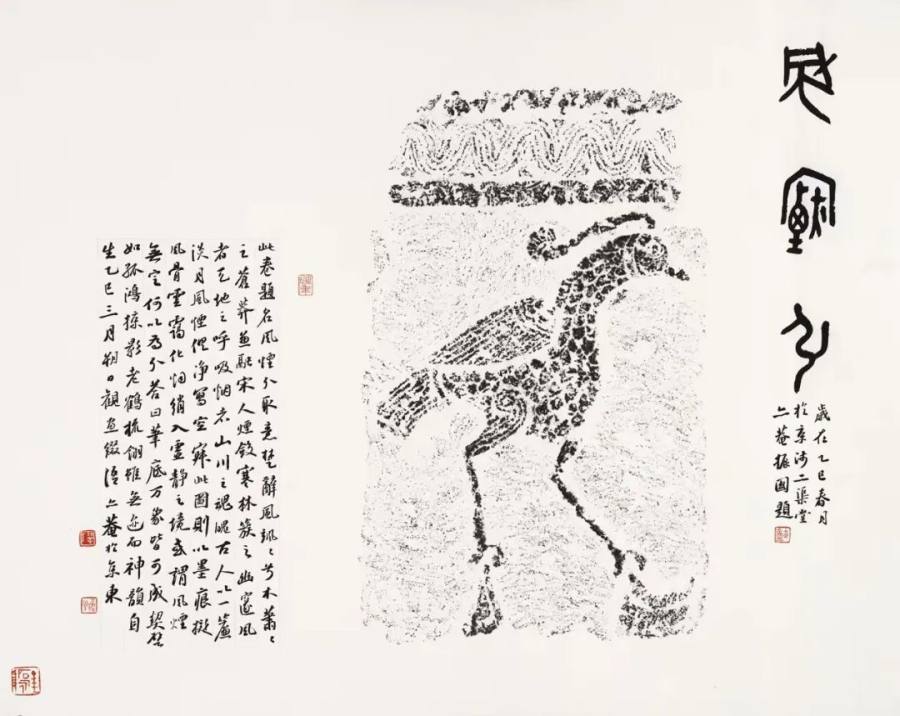 風煙兮
歲在乙巳春月
於京沛二渠堂
上菴振國題
此卷題名風煙兮取意楚辭風颯々兮木蕭々
之蒼莽並融宋人煙斂寒林簇之幽邃風
者天地之呼吸烟者山川之魂魄古人以一簾
淡月風煙俱淨寫空寂此圖則以墨痕擬
風骨雲靄化烟綃入靈靜之境或謂風煙
無定何以為兮答曰筆底万象皆可成契
如孤鴻掠影老鶴梳翎雖無迹而神韻自
生乙巳三月朔日觀畫綴語上菴於京東